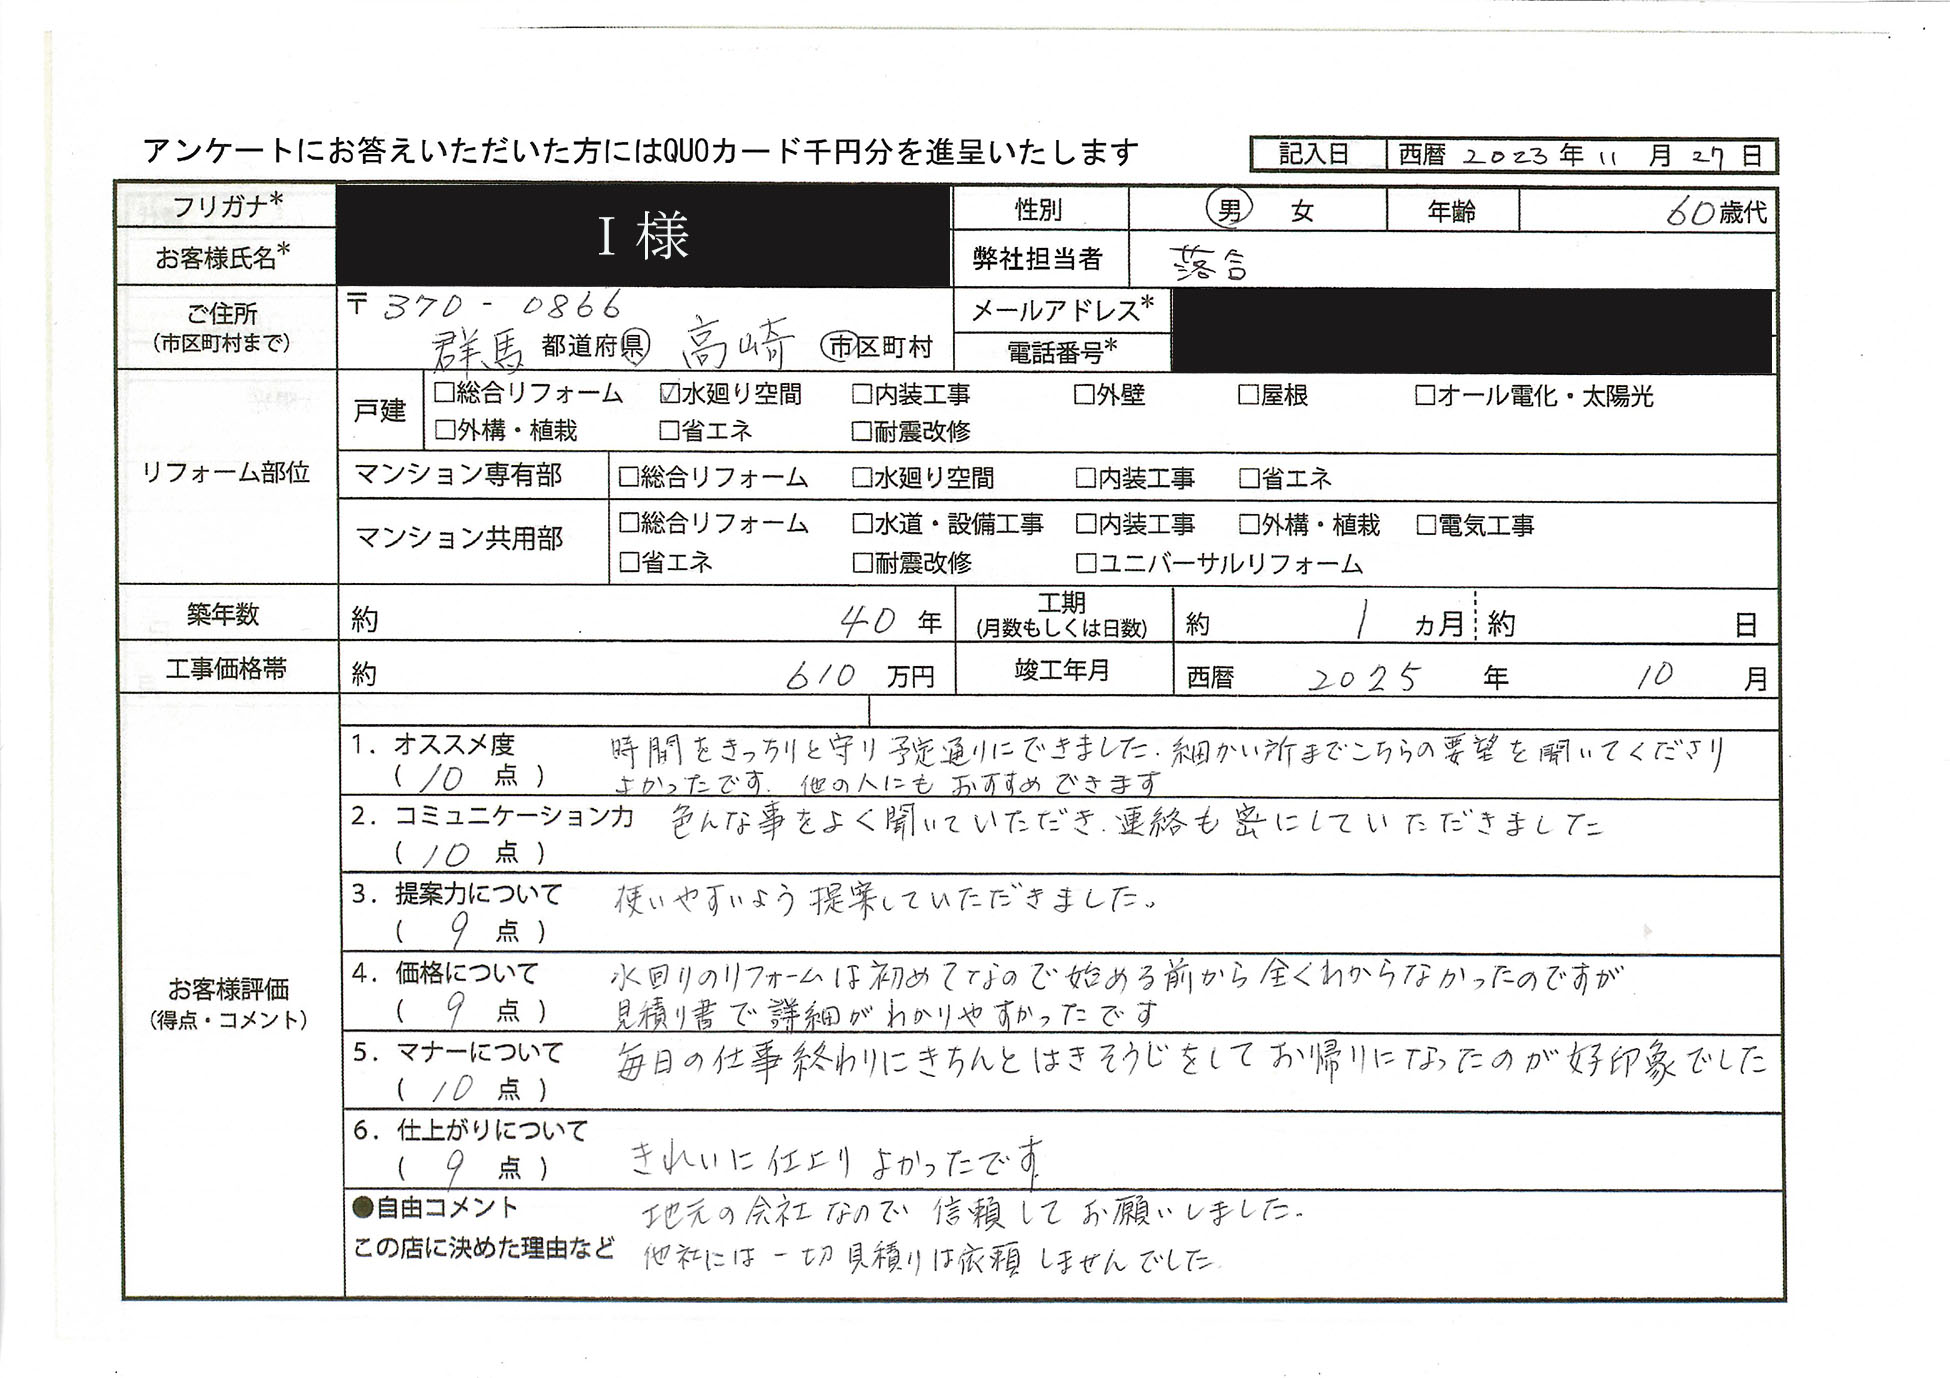 アンケートにお答えいただいた方にはQUOカード千円分を進呈いたします
記入日 西暦 2023 年 11 月 27 日
フリガナ* I 様 性別 男 女 年齢 60 歳代
お客様氏名* 弊社担当者 落合
ご住所 (市区町村まで) 〒 370 - 0866 メールアドレス*
群馬 都道府県 高崎 市区町村 電話番号*
リフォーム部位
戸建 □総合リフォーム ☑水廻り空間 □内装工事 □外壁 □屋根 □オール電化・太陽光
□外構・植栽 □省エネ □耐震改修
マンション専有部 □総合リフォーム □水廻り空間 □内装工事 □省エネ
マンション共用部 □総合リフォーム □水道・設備工事 □内装工事 □外構・植栽 □電気工事
□省エネ □耐震改修 □ユニバーサルリフォーム
築年数 約 40 年 工期 (月数もしくは日数) 約 1 ヵ月 約 日
工事価格帯 約 610 万円 竣工年月 西暦 2025 年 10 月
お客様評価
(得点・コメント)
1. オススメ度 時間をきっちりと守り予定通りにできました.細かい所までこちらの要望を聞いてくださり
( 10 点 ) よかったです. 他の人にもおすすめできます
2. コミュニケーション力 色んな事をよく聞いていただき.連絡も密にしていただきました
( 10 点 )
3. 提案力について 使いやすいよう提案していただきました。
( 9 点 )
4. 価格について 水回りのリフォームは初めてなので始める前から全くわからなかったのですが
( 9 点 ) 見積り書で詳細がわかりやすかったです
5. マナーについて 毎日の仕事終わりにきちんとはきそうじをしてお帰りになったのが好印象でした
( 10 点 )
6. 仕上がりについて
( 9 点 ) きれいに仕上りよかったです
●自由コメント 地元の会社なので信頼してお願いしました.
この店に決めた理由など 他社には一切見積りは依頼しませんでした.